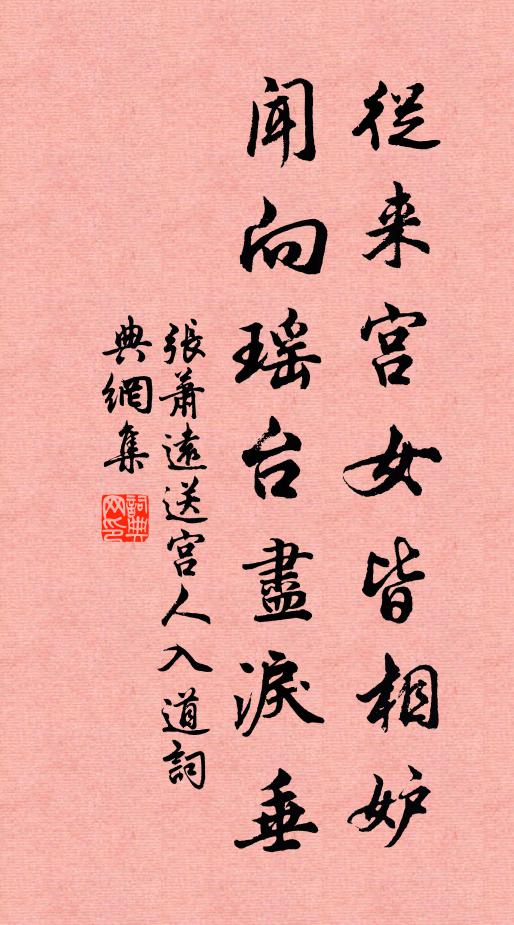 從来宮女皆相妒
聞向瑶台盡淚垂
張蕭遠送宮人入道詞
典網集
詞典网印